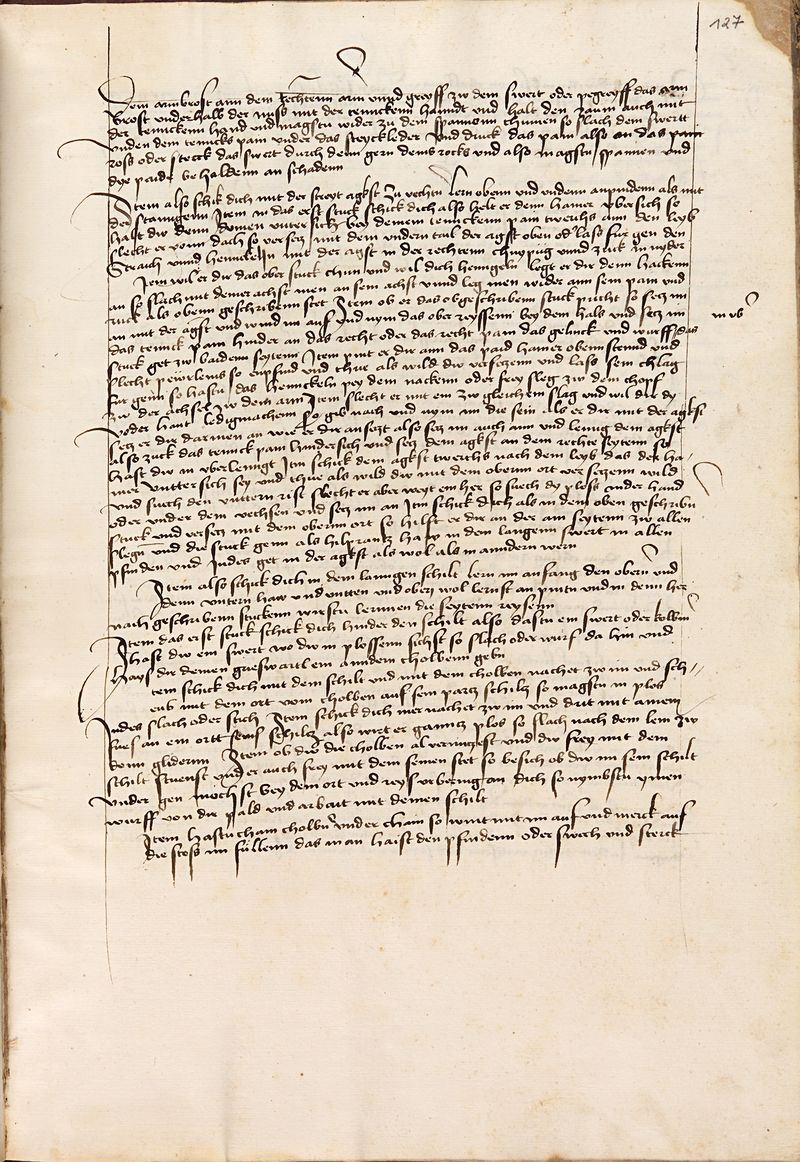 127
Dem armbrost ann dem rechtenn arm unnd greyff zw dem swert oder pegreyff das arm
brost underhalb der nuss mit der tenncken hanndt und halt den zaum auch mit
der tennckenn hand und magstu wider zu dem spannenn chumen so slach dem swertt
unden dem tenncks pain under das steyckleder und druck das pain also an das
ross oder steck das swert durch denn gern deins rocks und also magstu spannen und
dye paide behaldenn an schadenn
Item also schik dich mit der streyt agkst zu vechtn lern obenn und undenn anpindenn als mit
der stanngenn Item in das erst stuck schick dich also helt er denn hamer uber sich so
halt dw denn deinen untersich bey deinem tennckenn pain twerichs ann den leyb
slecht er vonn dach so versetz mit dem undern tail der agst oben od lass fur gen den
straich unnd hennckeln mit der agst in der rechtenn chnypüg unnd zuck in nyder
Item wil er dir das ober stuck thun und wil dich henngeln legt er dir denn hacken
an so slach mit deiner achst inen an sein achst unnd leg inen wider ann sein pain und
ruck als obenn geschribenn stet Item ob er das obgeschribenn stuck pricht so setz im
an mit der agst und wind im auf und nym das ober reyssenn bey dem hals und setz im
das tennck pain hinder an das recht oder das recht pain das gelinck und wurff das
stuck get zw baidenn seytenn Item pint er dir ann das paid hamer obenn stennd und
slecht peurleins so enpfind und thue als wild dw versetzenn und lass sein schlag
fur genn so hastu das hennckeln pey dem nackenn oder frey sleg zw dem chopf
zw der achsel zw dem arm Item slecht er mit ein zw gleichem slag und wil dir dy
oder hant ledigmachenn so gib nach und nym im die sein als er dir mit der agkst
setz er dir darinen an wie er dir ansetzt also setz im auch ann und leinng dem agkst
also zuck das tennck pain hindersich und setz dem agkst an dem rechte seytenn so
hast dw in uberlenngt Itm schick dem agkst twerichs nach dem leyb das der ha-
mer unttersich sey und thue als wild dw mit dem obernn ort versetzenn wild
und such den unttern ris slecht er aber weyt em her so suech dy ploss under hand
oder under dem uechsen und setz im an Itm schick dich als in dem oben geschribn
stuck und versetz mit dem obernn ort so hilft er dir an der am seytenn zw allen
slegn und die stuck genn als hilprantz haw in dem langenn swert in allen
pfinden und Indes get in der agkst als wol als in anndern wern
Item also schick dich in dem lanngen schilt lern im anfang den obern und
denn unttern haw und untten und oben wol lernst an pintn und in denn her
nach geschribenn stuckenn wirstu lernnen die seytenn reyssenn
Item das erst stuck schick dich hinder den schilt also dastu ein swert oder kolbm
hast dw ein swert wo dw in plossenn sichst so slach oder wurf da hin und
hays dir deinen grieswartl ein anndern cholbenn gebn
Item schick dich mit dem schilt und mit dem cholben nachet zw im und sch-
eub mit dem ort vom cholben auf sein partz schiltz so magstu in plos
Indes slach oder stich Item schick dich mer nachet zw im und drit mit ainem
fues an ein ortt seins schiltz also wirt er gannts plos so slach nach dem lem zw
denn gliderm Item ob dw die cholben al verwurfest und dw frey mit dem
schilt stuenst und er auch frey mit dem seinen stet so besich ob dw im sein schilt
under gen mochst bey dem ort und reys urbering an dich so nymbstu ymen
wurff von dir pald und arbait mit deinen schilt
Item hastu cham cholbn und er cham so wint mit im auf und merck auf
die stoss im fullenn das man haist den pfindenn oder swech und sterck